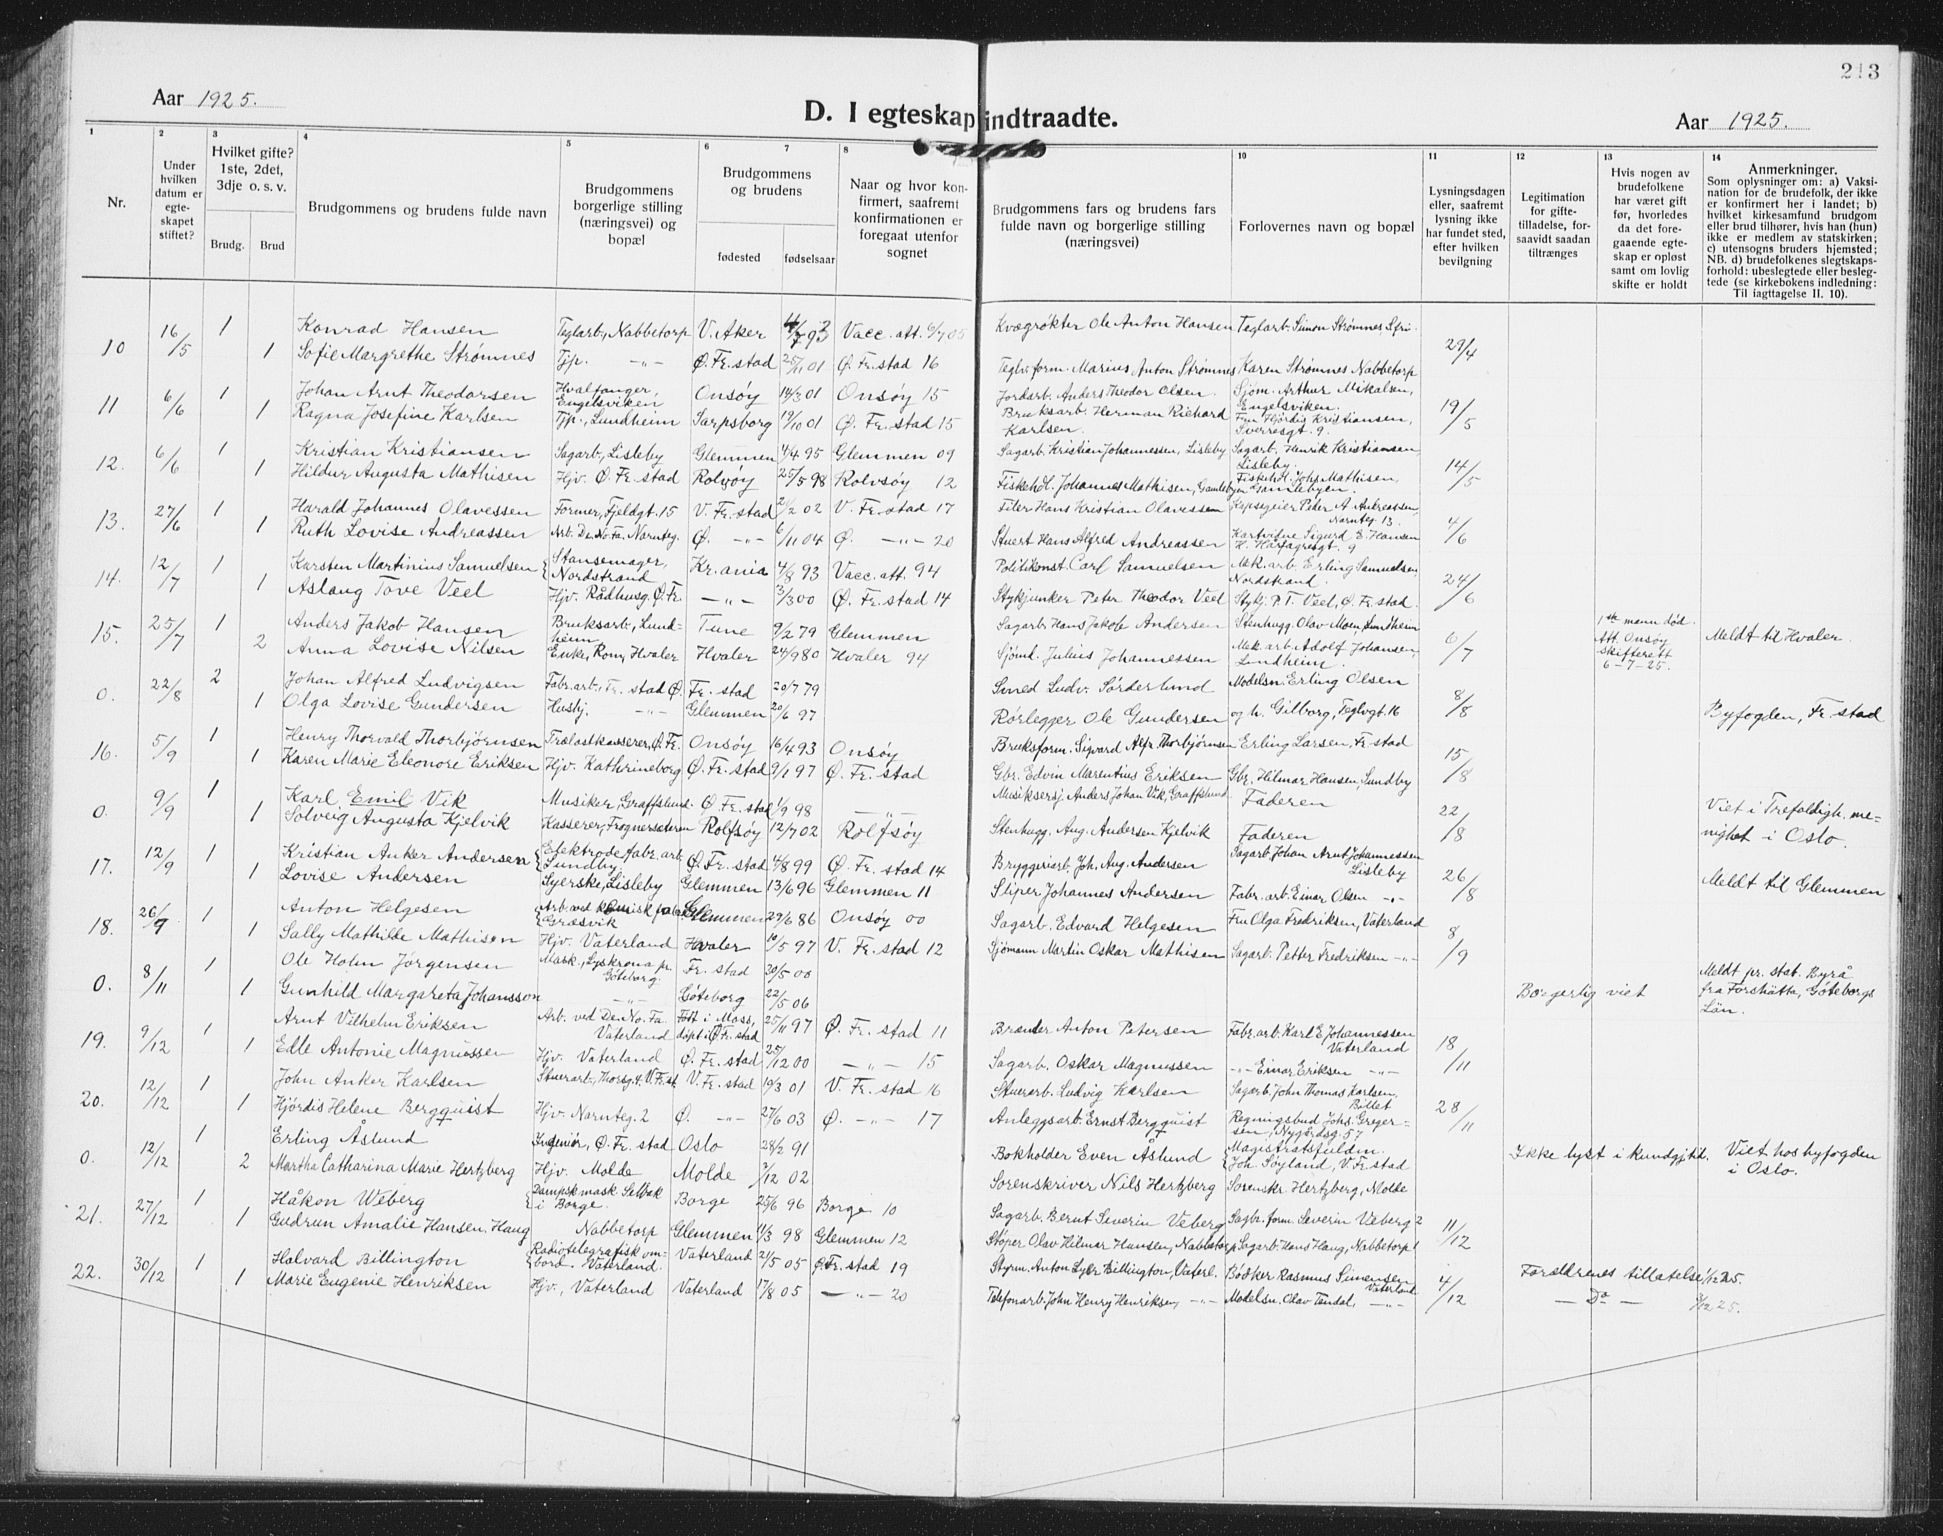 213
Aar 1925.
D. I egteskap indtraadte.
Aar 1925.
1 2 3 4 5 6 7 8 10 11 12 13 14
Nr.
Under hvilken datum er egteskapet stiftet?
Hvilket gifte? 1ste, 2det, 3dje o. s. v.
Brudg. Brud
Brudgommens og brudens fulde navn
Brudgommens borgerlige stilling (næringsvei) og bopæl
Brudgommens og brudens
fødested fødselsaar
Naar og hvor konfirmert, saafremt konfirmationen er foregaat utenfor sognet
Brudgommens fars og brudens fars fulde navn og borgerlige stilling (næringsvei)
Forlovernes navn og bopæl
Lysningsdagen eller, saafremt lysning ikke har fundet sted, efter hvilken bevilgning
Legitimation for giftetilladelse, forsaavidt saadan tiltrænges
Hvis nogen av brudefolkene har været gift før, hvorledes da det foregaaende egteskap er opløst samt om lovlig skifte er holdt
Anmerkninger.
Som oplysninger om: a) Vaksination for de brudefolk, der ikke er konfirmert her i landet; b) hvilket kirkesamfund brudgom eller brud tilhører, hvis han (hun) ikke er medlem av statskirken; c) utensogns bruders hjemsted; NB. d) brudefolkenes slegtskapsforhold: ubeslegtede eller beslegtede (se kirkebokens indledning: Til iagttagelse II. 10).
10 16/5 1 Konrad Hansen Teglarb., Nabbetorp V. Aker 93 Vacc. att. 6/7 05 Kvægrøkter Ole Anton Hansen Teglarb. Simon Strømnes 29/4
1 Sofie Margrethe Strømnes Tjp. -"- Ø. Fr. stad 25/11 01 Ø. Fr. stad 16 Teglv. form. Marius Anton Strømnes Karen Strømnes Nabbetorp
11 6/6 1 Johan Arnt Theodorsen Hvalfanger, Engelsviken Onsøy 14/3 01 Onsøy 15 Jordarb. Anders Theodor Olsen. Sjøm. Arthur Mikalsen, Engelsviken. 19/5
1 Ragna Josefine Karlsen Tjp., Lundheim Sarpsborg 19/10 01 Ø. Fr. stad 15 Bruksarb. Herman Richard Karlsen. Fru Hjørdis Kristiansen, Sverresgt. 9.
12. 6/6 1 Kristian Kristiansen Sagarb., Lisleby Glemmen 4/4 95 Glemmen 09 Sagarb. Kristian Johannessen, Lisleby Sagarb. Henrik Kristiansen, Lisleby. 14/5
1 Hildur Augusta Mathisen Hjv. Ø. Fr. stad Rolvsøy 25/5 98 Rolvsøy 12 Fiskehdl. Johannes Mathisen, Gamlebyen Fiskehdl. Johs Mathisen, Gamlebyen.
13. 27/6 1 Harald Johannes Olavessen Former, Fjeldgt. 15 V. Fr. stad 2/2 02 V. Fr. stad 17 Filer Hans Kristian Olavessen Peter A. Andreassen, Narnteg 13. 4/6
1 Ruth Lovise Andreassen Arb. De No. Fa. Narnteg. Ø. -"- 6/11 04 Ø. -"- 20 Stuert Hans Alfred Andreassen Sigurd E. Hansen H. Hårfagresgt. 9
14. 12/7 1 Karsten Martinius Samuelsen Stansemager, Nordstrand Kr. ania 4/8 93 Vacc. att. 94 Politikonst. Carl Samuelsen Mek. arb. Erling Samuelsen, Nordstrand. 24/6
1 Aslaug Tove Veel Hjv. Rådhusg. Ø. Fr. -"- 3/3 00 Ø. Fr. stad 14 Stykjunker Peter Theodor Veel Stykj. P. T. Veel, Ø. Fr. stad.
15. 25/7 1 Anders Jakob Hansen Bruksarb., Lundheim Tune 9/2 79 Glemmen Sagarb. Hans Jakob Andersen Stenhugg. Olav Moen, Lundheim 6/7 1ste mann død. Att. Onsøy skifterett 6-7-25. Meldt til Hvaler.
2 Anna Lovise Nilsen Enke, Rom, Hvaler Hvaler 24/9 80 Hvaler 94 Sjømd. Julius Johannessen Mek. arb. Adolf Johansen, Lundheim.
0. 22/8 2 Johan Alfred Ludvigsen Fabr. arb., Fr. stad Ø. Fr. stad 20/7 79 Smed Ludv. Sørderlund Modelsn. Erling Olsen 8/8 Byfogden, Fr. stad
1 Olga Lovise Gundersen Husbj. -"- Glemmen 20/6 97 Rørlegger Ole Gundersen og h. Gilborg, Teglvgt. 16
16. 5/9 1 Henry Thorvald Thorbjørnsen Trælastkasserer, Ø. Fr. Onsøy 16/4 93 Onsøy Bruksform. Sigvard Alfr. Thorbjørnsen Erling Larsen, Fr. stad 15/8
1 Karen Marie Eleonore Eriksen Hjv. Kathrineborg Ø. Fr. stad 9/1 97 Ø. Fr. stad Gbr. Edvin Marentius Eriksen Gbr. Hilmar Hansen, Sundby
0. 9/9 1 Karl Emil Vik Musiker, Graffslund. Ø. Fr. stad 1/9 98 -"- Musiksersj. Anders Johan Vik, Graffslund Faderen 22/8 Viet i Trefoldigh. menighet i Oslo.
1 Solveig Augusta Kjelvik Kasserer, Frognersæteren Rolfsøy 12/7 02 Rolfsøy Stenhugg. Aug. Andersen Kjelvik Faderen
17. 12/9 1 Kristian Anker Andersen Elektrodefabr. arb. Sundby Ø. Fr. stad 4/8 99 Ø. Fr. stad 14 Bryggeriarb. Joh. Aug. Andersen Sagarb. Johan Arnt Johannessen Lisleby 26/8 Meldt til Glemmen
1 Lovise Andersen Syerske, Lisleby Glemmen 13/6 96 Glemmen 11 Sliper Johannes Andersen Fabr. arb. Einar Olsen -"-
18. 26/9 1 Anton Helgesen Arb. ved kemisk fabr. Græsvik Glemmen 29/6 86 Onsøy 00 Sagarb. Edvard Helgesen Fru Olga Fredriksen, Vaterland 8/9
1 Sally Mathilde Mathisen Hjv. Vaterland Hvaler 10/5 97 V. Fr. stad 12 Sjømann Martin Oskar Mathisen Sagarb. Petter Fredriksen -"-
0. 8/11 1 Ole Holm Jørgensen Mask., Lyskrona pr. Göteborg. Fr. stad 30/5 00 Borgerlig viet Meldt pr. stat. Byrå fra Forshätta, Göteborgs Län.
1 Gunhild Margareta Johansson -"- Göteborg 22/5 06
19. 9/12 1 Arnt Vilhelm Eriksen Arb. ved De No. Fa. Vaterland Født i Moss, døpt i Ø. Fr. stad 25/11 97 Ø. Fr. stad 11 Brænder Anton Petersen Fabr. arb. Karl E. Johannessen Vaterland 18/11
1 Elle Antonie Magnussen Hjv. Vaterland Ø. Fr. stad 25/12 00 -"- 15 Sagarb. Oskar Magnussen -"- Einar Eriksen -"-
20. 12/12 1 John Anker Karlsen Stuerarb., Thorsg. 4. V. Fr. st. V. Fr. stad 19/3 01 V. Fr. stad 16 Stuerarb. Ludvig Karlsen Sagarb. John Thomas Karlsen, Billet 28/11
1 Hjørdis Helene Bergquist Hjv. Narnteg. 2 Ø. -"- 27/6 03 Ø. -"- 17 Anleggsarb. Ernst Bergquist Regningsbud Johs. Gregersen, Nygårdsg. 57
0. 12/12 1 Erling Åslund Ingeniør, Ø. Fr. stad Oslo 28/2 91 Bokholder Even Åslund Magistratsfuldm. Joh. Søyland, V. Fr. stad Ikke lyst i kundgj. tid. Viet hos byfogden i Oslo.
2 Martha Catharina Marie Hertzberg Hjv. Molde Molde 2/12 02 Sorenskriver Nils Hertzberg Sorenskr. Hertzberg, Molde
21. 27/12 1 Håkon Weberg Dampsk. mask. Selbak i Borge. Borge 25/6 96 Borge 10 Sagarb. Bernt Severin Veberg Sagbr. form. Severin Veberg 2 11/12
1 Gudrun Amalie Hansen, Haug Nabbetorp Glemmen 11/3 98 Glemmen 12 Støper Olav Hilmar Hansen, Nabbetorp Sagarb. Hans Haug, Nabbetorp 1
22. 30/12 1 Halvard Billington Radiotelegrafisk ombord. Vaterland. Vaterland 21/5 05 Ø. Fr. stad 19 Styrm. Anton Billington, Vaterl. Bødker Rasmus Simensen Vaterland 4/12 Forældrenes tillatelse 1/12 25.
1 Marie Eugenie Henriksen Hjv., Vaterland Vaterland 17/8 05 -"- 20 Telefonarb. John Henry Henriksen, -"- Modelsn. Olav Tendal, -"- - Do - 2/12 25.